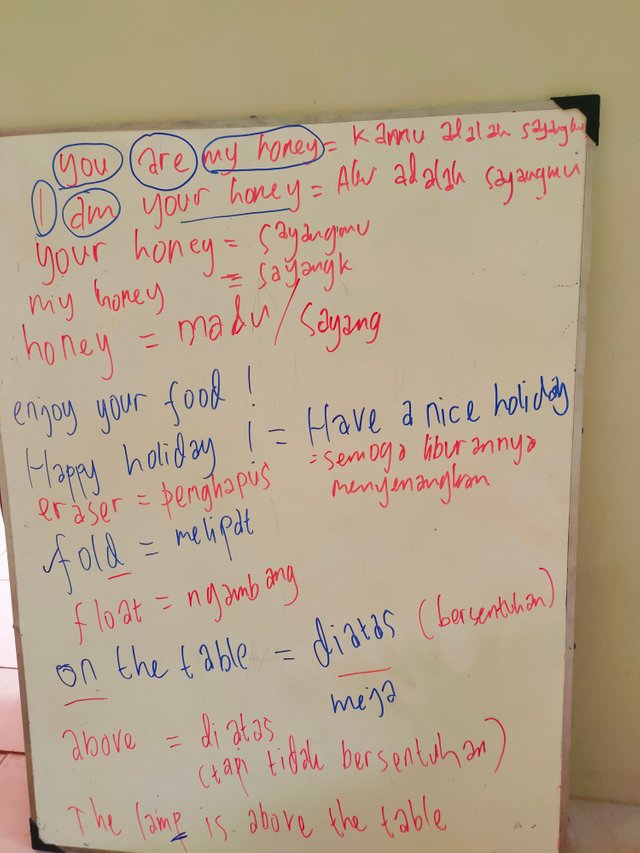 you are my honey = kamu adalah sayangku
I am your honey = Aku adalah sayangmu
your honey = sayangmu
my honey = sayangk
honey = madu / sayang
enjoy your food !
Happy holiday ! = Have a nice holiday
= semoga liburannya
menyenangkan
eraser = penghapus
fold = melipat
float = ngambang
on the table = diatas (bersentuhan)
meja
above = diatas
(tapi tidak bersentuhan)
The lamp is above the table